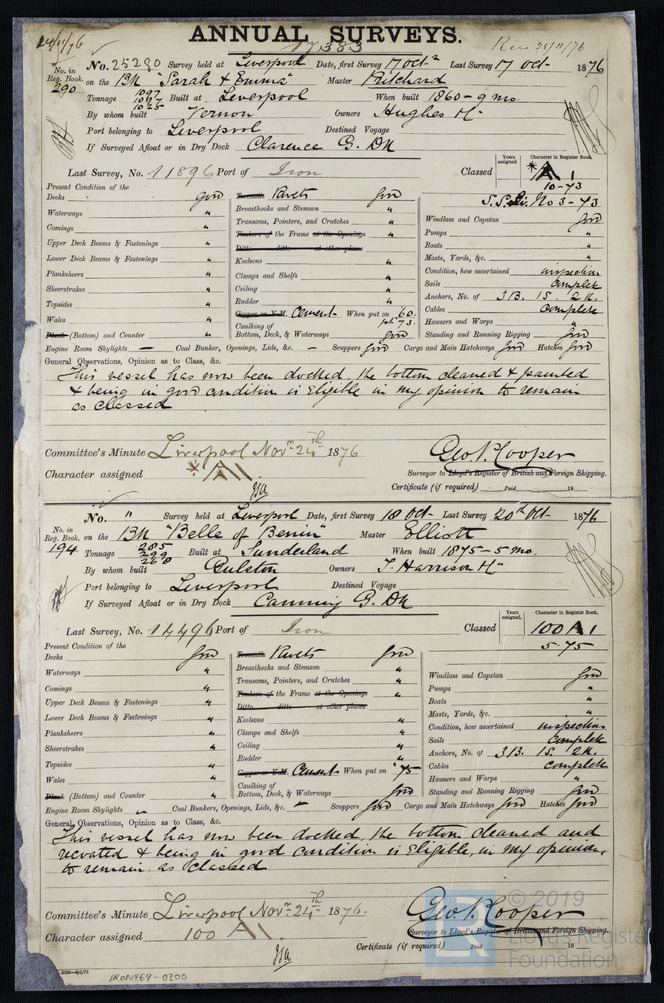 24/11/76
ANNUAL SURVEYS.
17383
Rec 25/11/76
No. in Reg. Book. 290
No. 25290 Survey held at Liverpool Date, first Survey 17 Oct Last Survey 17 Oct 1876
on the Bk "Sarah & Emma" Master Pritchard
Tonnage 1097 1047 1025 Built at Liverpool When built 1860 - 9 mo.
By whom built Vernon Owners Hughes
Port belonging to Liverpool Destined Voyage
If Surveyed Afloat or in Dry Dock Clarence G. Dk
Last Survey, No. 11896 Port of Iron Classed
Years assigned. Character in Register Book.
A1
10-73
No 3-73
Present Condition of the
Decks good
Waterways "
Comings "
Upper Deck Beams & Fastenings "
Lower Deck Beams & Fastenings "
Planksheers "
Sheerstrakes "
Topsides "
Wales "
Plank (Bottom) and Counter "
Treenails Rivets good
Breasthooks and Stemson "
Transoms, Pointers, and Crutches "
Timbers of the Frame at the Openings "
Ditto ditto at other places
Keelsons "
Clamps and Shelfs "
Ceiling "
Rudder "
Copper or Y.M. Cement When put on 60. pt 73.
Caulking of Bottom, Deck, & Waterways good
Windlass and Capstan good
Pumps "
Boats "
Masts, Yards, &c. "
Condition, how ascertained inspection
Sails Complete
Anchors, No. of 3 B. 1 S. 2 K.
Cables Complete
Hawsers and Warps "
Standing and Running Rigging good
Engine Room Skylights — Coal Bunkers, Openings, Lids, &c. — Scuppers good Cargo and Main Hatchways good Hatches good
General Observations, Opinion as to Class, &c.
This vessel has now been docked, the bottom cleaned & painted
& being in good condition is Eligible in my opinion to remain
as classed
Committee's Minute Liverpool Novr 24th 1876
Character assigned A1
Geo. P. Cooper
Surveyor to Lloyd's Register of British and Foreign Shipping.
Certificate (if required) Paid 18
No. in Reg. Book. 194
No. " Survey held at Liverpool Date, first Survey 18 Oct Last Survey 20th Oct 1876
on the Bk "Belle of Benin" Master Elliott
Tonnage 285 299 268 Built at Sunderland When built 1875 - 5 mo.
By whom built Gulston Owners T. Harrison
Port belonging to Liverpool Destined Voyage
If Surveyed Afloat or in Dry Dock Canning G. Dk
Last Survey, No. 14496 Port of Iron Classed
Years assigned. Character in Register Book.
100 A1
5-75
Present Condition of the
Decks good
Waterways "
Comings "
Upper Deck Beams & Fastenings "
Lower Deck Beams & Fastenings "
Planksheers "
Sheerstrakes "
Topsides "
Wales "
Plank (Bottom) and Counter "
Treenails Rivets good
Breasthooks and Stemson "
Transoms, Pointers, and Crutches "
Timbers of the Frame at the Openings "
Ditto ditto at other places
Keelsons "
Clamps and Shelfs "
Ceiling "
Rudder "
Copper or Y.M. Cement When put on "75
Caulking of Bottom, Deck, & Waterways good
Windlass and Capstan good
Pumps "
Boats "
Masts, Yards, &c. "
Condition, how ascertained inspection
Sails Complete
Anchors, No. of 3 B. 1 S. 2 K.
Cables complete
Hawsers and Warps "
Standing and Running Rigging good
Engine Room Skylights Coal Bunkers, Openings, Lids, &c. Scuppers good Cargo and Main Hatchways good Hatches good
General Observations, Opinion as to Class, &c.
This vessel has now been docked, the bottom cleaned and
recoated & being in good condition is Eligible, in my opinion,
to remain as classed
Committee's Minute Liverpool Novr 24th 1876.
Character assigned 100 A1
Geo. P. Cooper
Surveyor to Lloyd's Register of British and Foreign Shipping.
Certificate (if required) Paid 18
IRON469-0200
© 2019
Lloyd's Register
Foundation